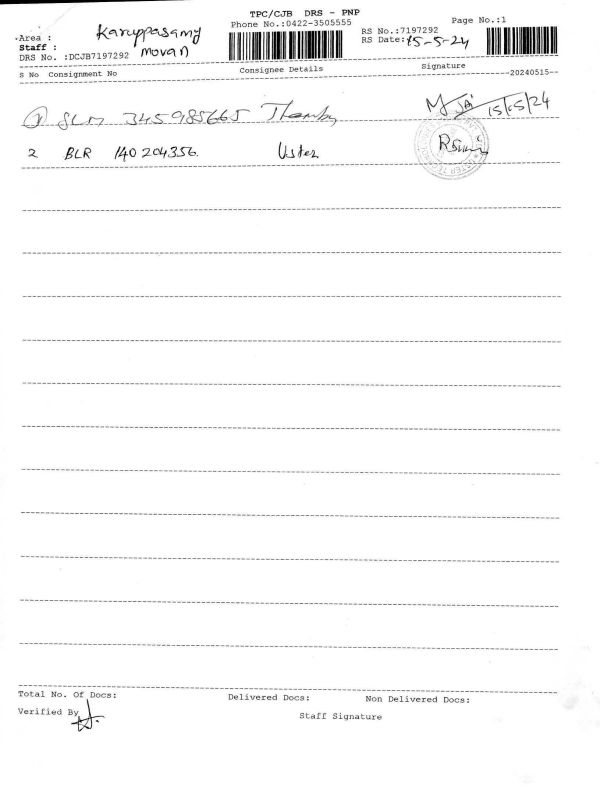 TPC/CJB DRS - PNP
Phone No.:0422-3505555
Page No.:1
Area : Karuppasamy
RS No.:7197292
Staff :
RS Date: 15-5-24
DRS No. :DCJB7197292 Movan
S No Consignment No Consignee Details Signature
20240515
1 SLM 345985665 15/05/24
2 BLR 140204356. Uster
Total No. Of Docs: Delivered Docs: Non Delivered Docs:
Verified By
Staff Signature